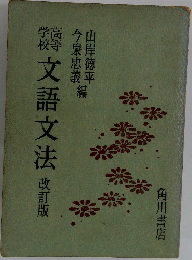 高等
学校
文語文法 改訂版
山岸德平
今泉忠義 編
角川書店